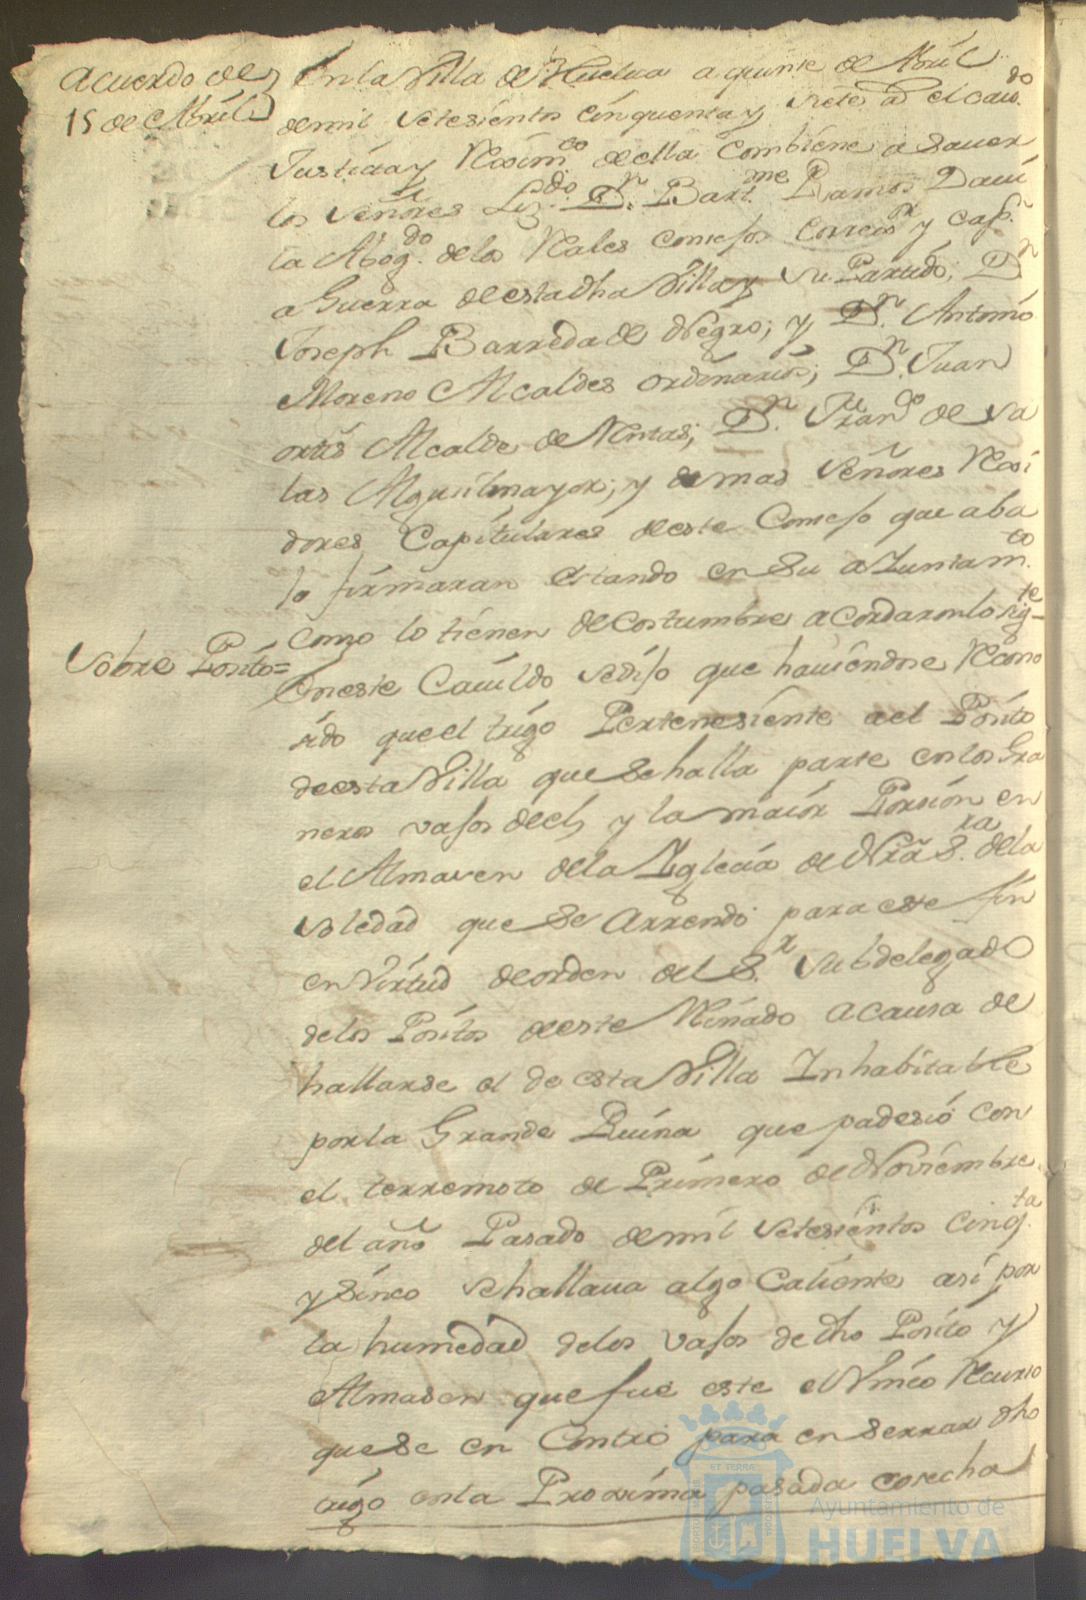 Acuerdo de
15 de Abril
En la Villa de Huelva a quinse de Abril
de mil setesientos cinquenta y siete as el cavdo
Justicia y Reximto de ella combiene a saver
los señores Lizdo. Dn. Bartme Ramos Davi
la Abogdo. de los Rales consejos correor y capn
a Guerra de esta dha Villa y su Partido; Dn
Joseph Barreda de Negro; y Dn. Antonio
Moreno Alcaldes ordinarios; Dn. Juan
ortis Alcalde de Rentas; Dn. Frando de Sa
las Alguasilmayor; y demas señores Rexi
dores Capitulares de este Consejo que aba
jo firmaran estando en su aiuntamto
como lo tienen de costumbre acordaron lo sigte
Sobre Posito=
En este Cavildo se dijo que haviendose Recono
sido que el trigo Pertenesiente a el Posito
de esta Villa que se halla parte en los Gra
neros vajos de el, y la maior Porsion en
el Almasen de la Iglecia de Nra Sra de la
soledad que se Arrendó para este fin
en Virtud de orden del Sr Subdelegado
de los Positos de este Reinado a causa de
hallarse el de esta Villa Inhabitable
por la Grande Ruina que padesió con
el terremoto de Primero de Noviembre
del año Pasado de mil setesientos cinqta
y sinco se hallava algo Caliente asi por
la humedad de los vajos de dho Posito y
Almasen que fue este el Unico Recurso
que se en Contró para en serrar dho
trigo en la Proxima pasada cosecha
Ayuntamiento de
HUELVA